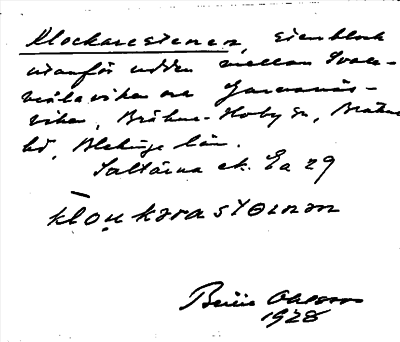 Klockarestenen, stenblock
utanför udden mellan Svane-
viksviken och Garnanäs-
viken, Bräkne-Hoby sn, Bräkne
hd, Blekinge län.
Saltärna ek. Ea 29
kloukarastenan
Ohlsson
1928